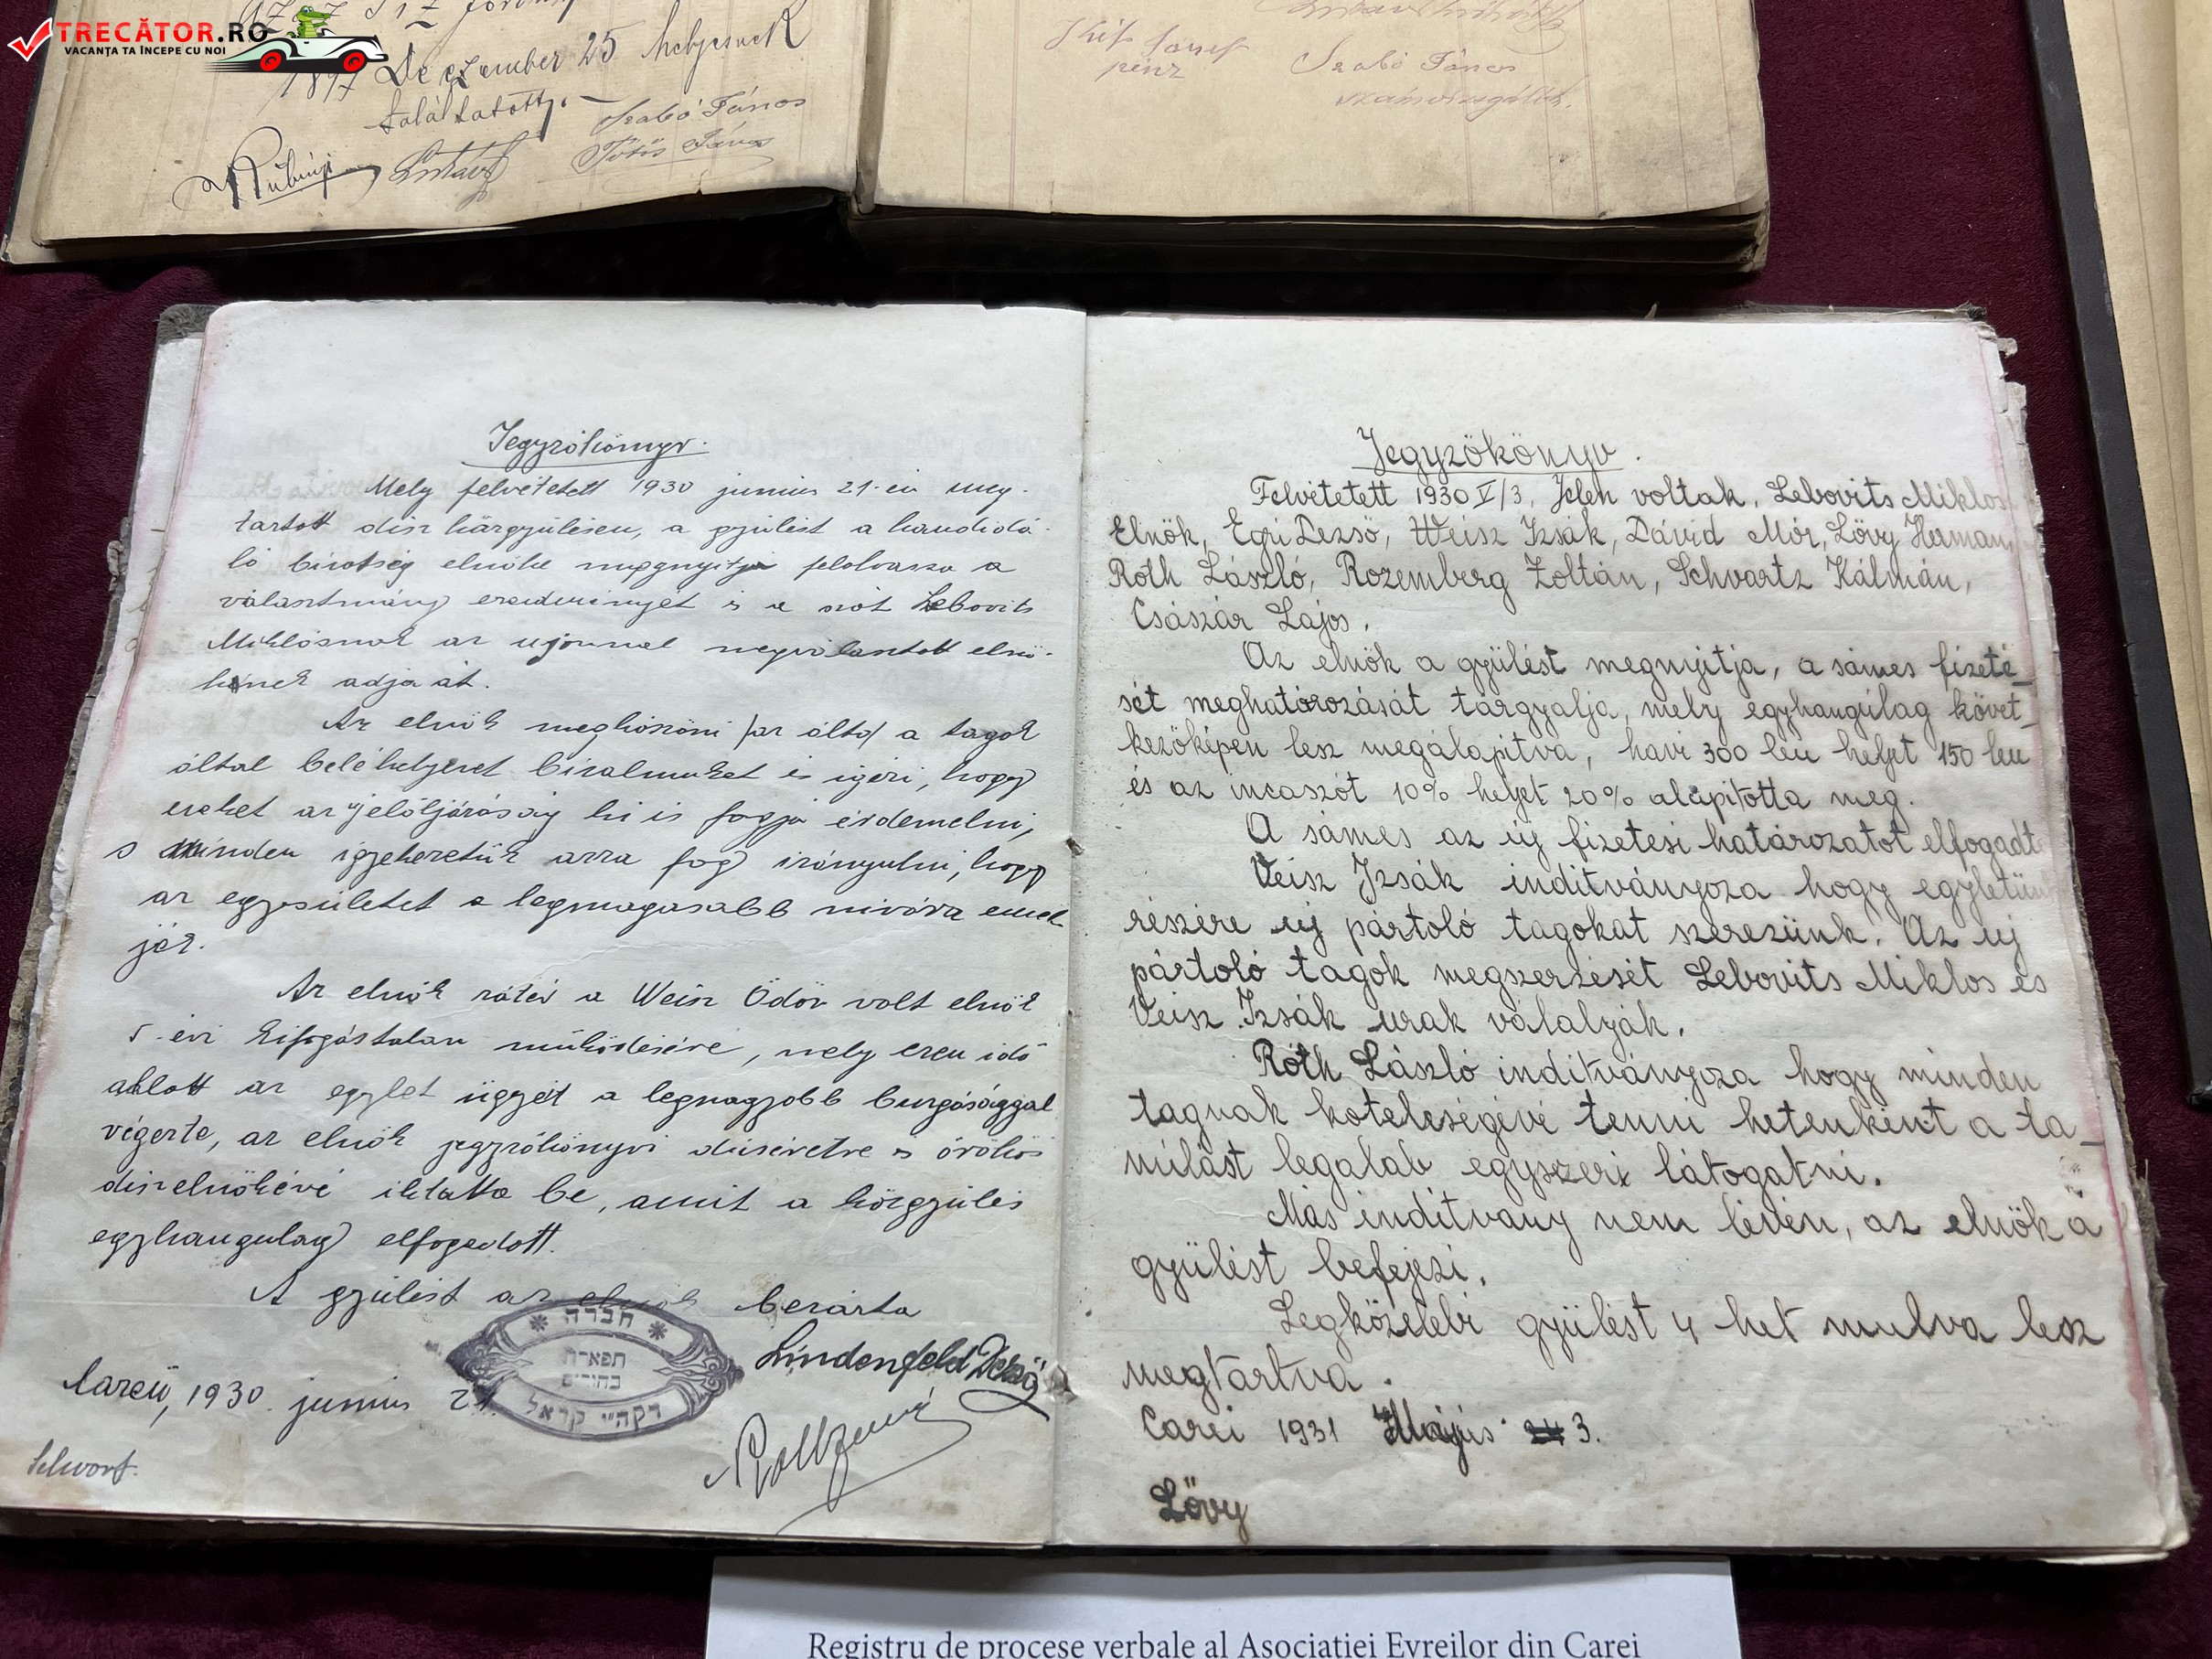 TRECĂTOR.RO
VACANȚA TA ÎNCEPE CU NOI
1897 Deczember 25 helyesnek
találtatott,
Szabó János
Rubinyi Gusztáv
Tötös János
Szabó János
számvizsgálók.
pénz
Jegyzőkönyv.
Mely felvétetett 1930 junius 21-én meg-
tartott disz közgyülésen, a gyülést a kandidá-
ló bizotság elnöke megnyitja felolvassa a
választmány eredményét is a szót Lebovits
Miklósnak az ujonnal megválasztott elnö-
könek adja át.
Az elnök megköszöni /az álta/ a tagok
által beléhelyezet bizalmukat és igéri, hogy
ezeket az elöljáróság ki is fogja érdemelni,
s minden igyekezetük arra fog irányulni, hogy
az egyesületet a legmagasabb nivóra emel-
ják.
Az elnök rátér a Weisz Ödön volt elnök
5-évi kifogástalan müködésére, mely ezen idő
allatt az egylet ügyét a legnagyobb buzgósággal
végezte, az elnök jegyzőkönyvi diséretre s örökös
diszelnökévé iktatta be, amit a közgyülés
egyhangulag elfogadott.
A gyülést az elnök bezárta
חברה
תפארת
בחורים
דקה״י קראל
Lindenfeld Dezső
Careii, 1930. junius 21.
Schvarz.
Jegyzőkönyv.
Felvétetett 1930 V/3. Jelen voltak, Lebovits Miklos
Elnök, Egri Dezsö, Weisz Izsák, Dávid Mór, Lövy Herman,
Róth László, Rozemberg Zoltán, Schvartz Kálmán,
Császár Lajos.
Az elnök a gyülést megnyitja, a sámes fizeté-
sét meghatározását tárgyalja, mely egyhangúlag követ-
kezöképen lesz megálapitva, havi 300 leu helyet 150 leu
és az incaszót 10% helyet 20% alapitotta meg.
A sámes az új fizetési határozatot elfogadta
Veisz Izsák inditványoza hogy egyletün
részére új pártoló tagokat szerezünk. Az új
pártoló tagok megszerzését Lebovits Miklos és
Veisz Izsák urak válalyák.
Róth László inditványoza hogy minden
tagnak koteleségévé tenni hetenként a ta-
nulást legalab egyszeri látogatni.
Más inditvany nem lévén, az elnök a
gyülést befejezi.
Legközelebi gyülést 4 het mulva lesz
megtartva.
Carei 1931 Május 3.
Lövy
Registru de procese verbale al Asociației Evreilor din Carei